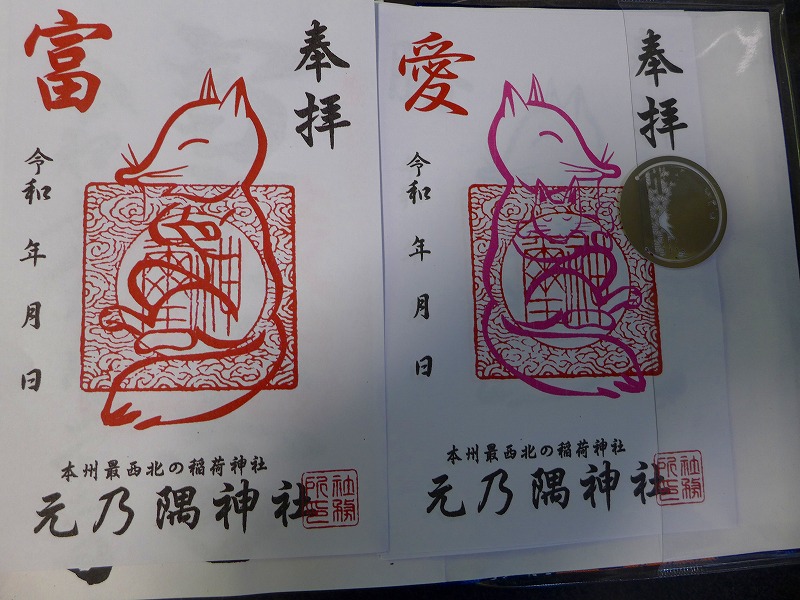 奉拝
富
令和 年 月 日
本州最西北の稲荷神社
元乃隅神社
社務所印
奉拝
愛
令和 年 月 日
本州最西北の稲荷神社
元乃隅神社
社務所印